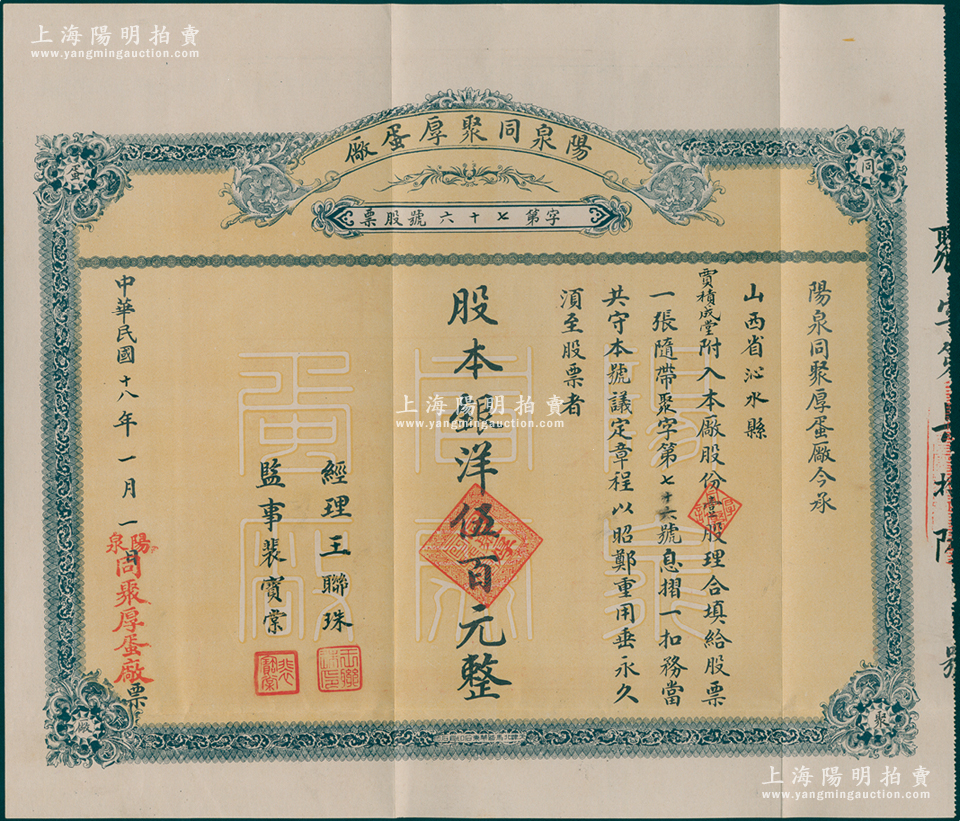 上海陽明拍賣
www.yangmingauction.com
陽泉同聚厚蛋廠
字第七十六號股票
同
聚
蛋
廠
陽泉同聚厚蛋廠今承
山西省沁水縣
賈積成堂附入本廠股份壹股理合填給股票
一張隨帶聚字第七十六號息摺一扣務當
共守本號議定章程以昭鄭重用垂永久
須至股票者
股本銀洋伍百元整
經理王聯珠
監事裴寶棠
中華民國十八年一月一日
票
陽泉
同聚厚蛋廠
上海陽明拍賣
www.yangmingauction.com
上海陽明拍賣
www.yangmingauction.com